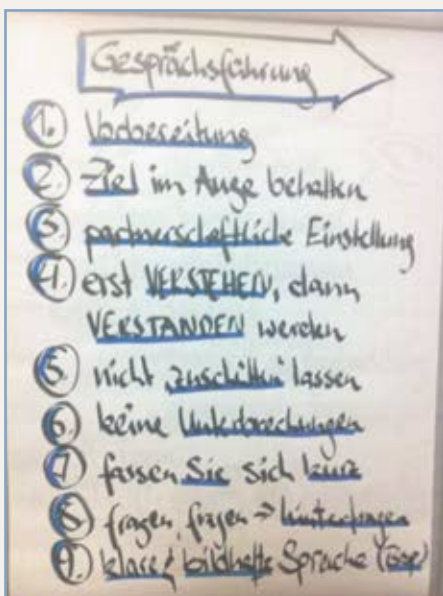 Gesprächsführung
1. Vorbereitung
2. Ziel im Auge behalten
3. partnerschaftliche Einstellung
4. erst VERSTEHEN, dann
VERSTANDEN werden
5. nicht „zuschütten" lassen
6. keine Unterbrechungen
7. fassen Sie sich kurz
8. fragen, fragen → hinterfragen
9. klare & bildhafte Sprache (Bsp)